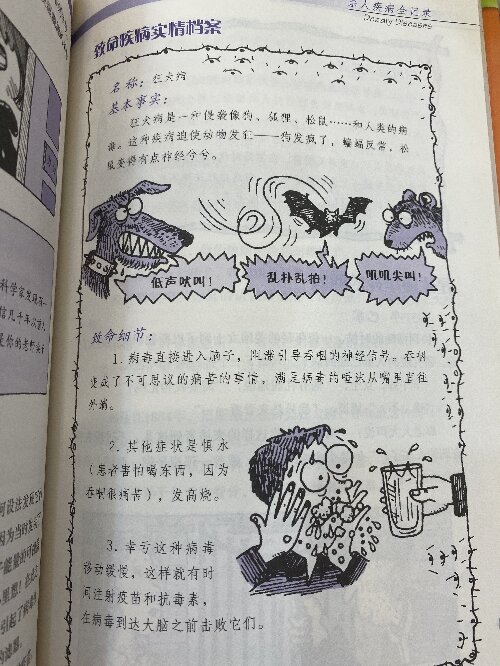 杀人疾病全记录
Deadly Diseases
致命疾病实情档案
名称：狂犬病
基本事实：
狂犬病是一种侵袭像狗、狐狸、松鼠……和人类的病
毒。这种疾病迫使动物发狂——狗发疯了，蝙蝠反常，松
鼠变得有点神经兮兮。
低声吠叫！
乱扑乱拍！
吼叽尖叫！
致命细节：
1. 病毒直接进入脑子，阻滞引导吞咽的神经信号。吞咽
变成了不可思议的痛苦的事情，满是病毒的唾沫从嘴里直往
外淌。
2. 其他症状是惧水
（患者害怕喝东西，因为
吞咽很痛苦），发高烧。
3. 幸亏这种病毒
移动缓慢，这样就有时
间注射疫苗和抗毒素，
在病毒到达大脑之前击败它们。
科学家发现有一